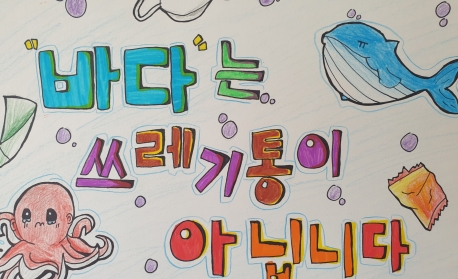 "바다"는
쓰레기통이
아닙니다